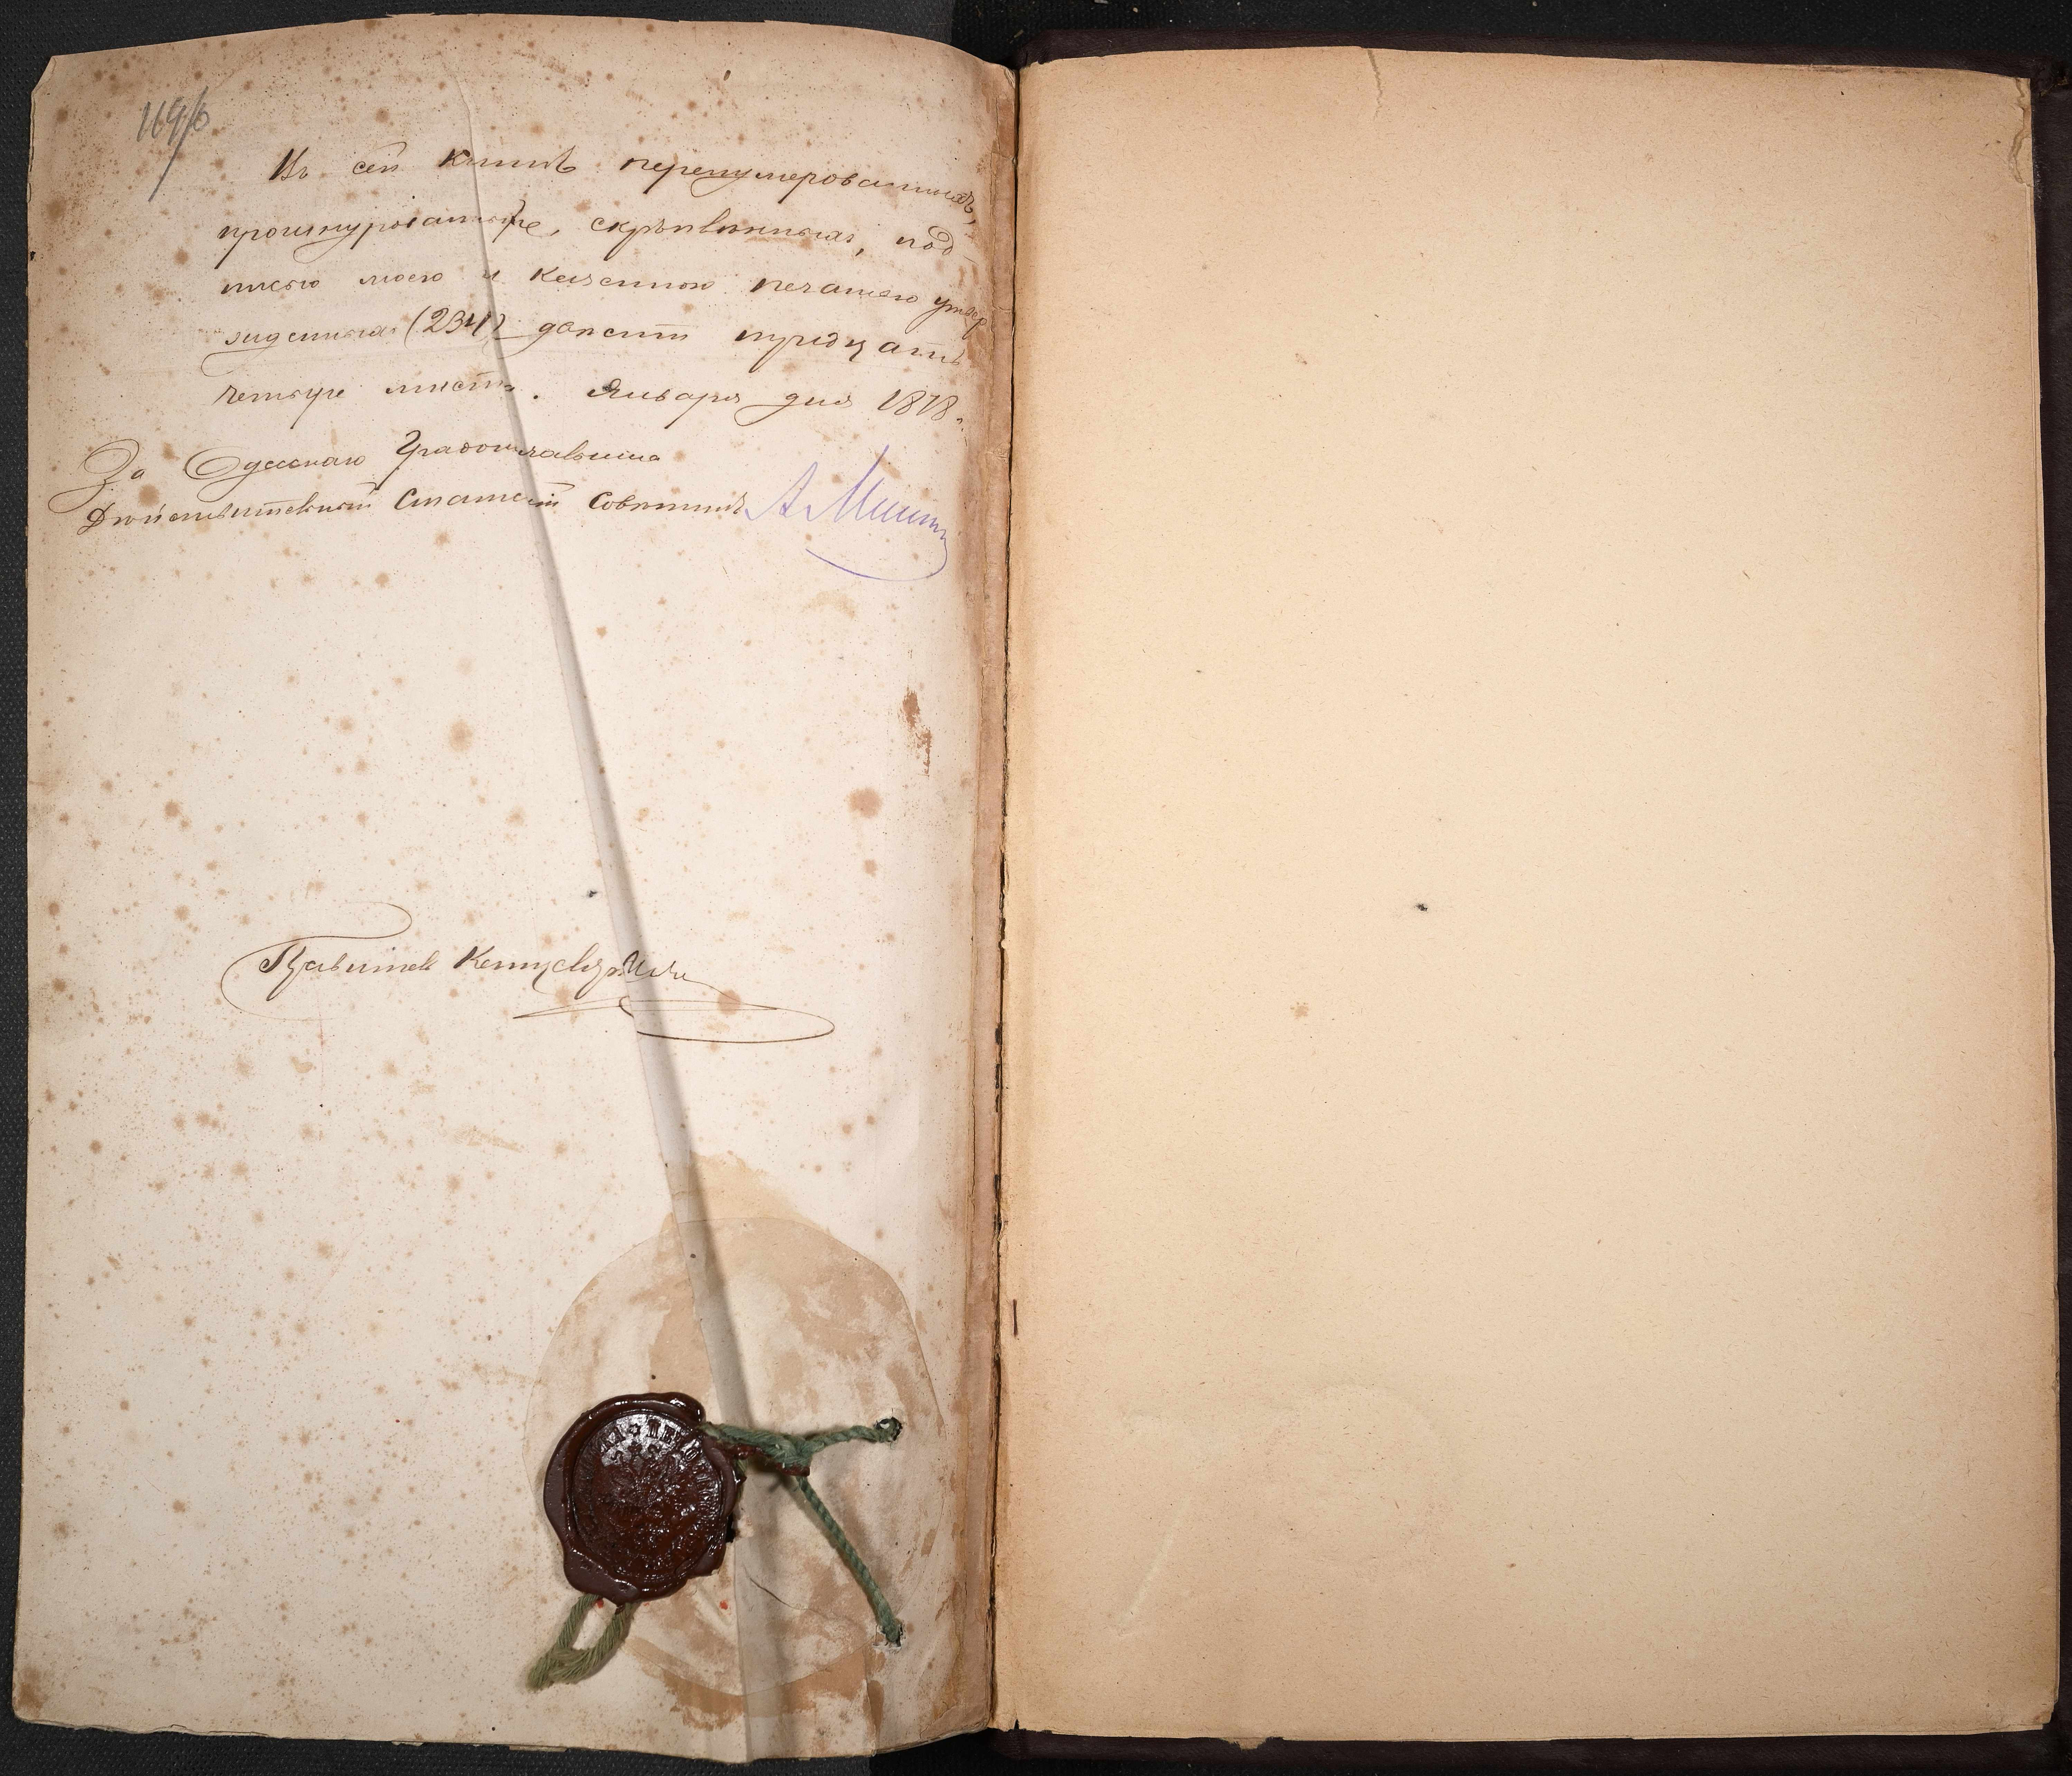 169/б
Въ сей книгѣ перенумерованныхъ,
прошнурованныхъ, скрѣпленныхъ, под-
писью моею и казенною печатью утвер
жденныхъ (234) двѣсти тридцать
четыре листа. Января дня 1878 г.
За Одесскаго Градоначальника
Дѣйствительный Статскій Совѣтникъ А
Правитель Канцеляріи